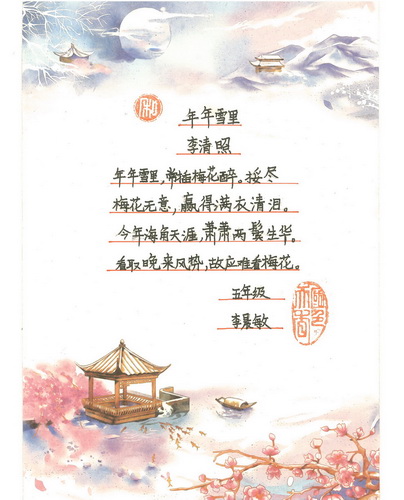 年年雪里
李清照
年年雪里,常插梅花醉。挼尽
梅花无意,赢得满衣清泪。
今年海角天涯,萧萧两鬓生华。
看取晚来风势,故应难看梅花。
五年级
李晨敏
国色天香